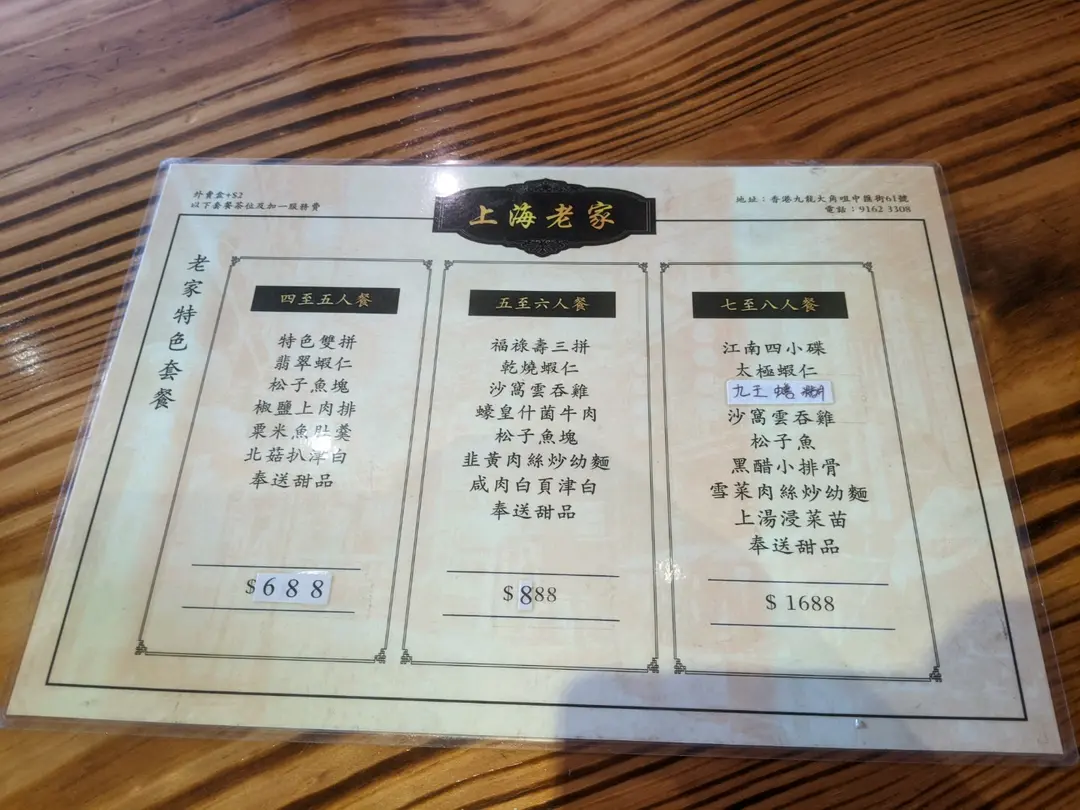 外賣盒+$2
以下套餐茶位及扣一服務費
上海老家
地址：香港九龍大角咀中匯街61號
電話：9162 3308
老家特色套餐
四至五人餐
特色雙拼
翡翠蝦仁
松子魚塊
椒鹽上肉排
粟米魚肚羹
北菇扒津白
奉送甜品
$688
五至六人餐
福祿壽三拼
乾燒蝦仁
沙窩雲吞雞
蠔皇什菌牛肉
松子魚塊
韭黃肉絲炒幼麵
咸肉白頁津白
奉送甜品
$888
七至八人餐
江南四小碟
太極蝦仁
九王鱔糊
沙窩雲吞雞
松子魚
黑醋小排骨
雪菜肉絲炒幼麵
上湯浸菜苗
奉送甜品
$ 1688